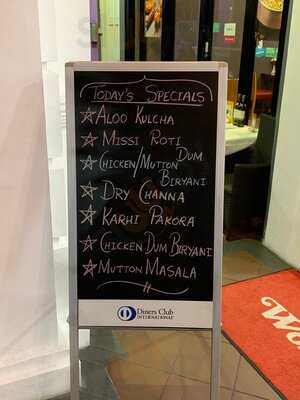 TODAY'S SPECIALS
ALOO KULCHA
MISSI ROTI
CHICKEN/MUTTON DUM
BIRYANI
DRY CHANNA
KARHI PAKORA
CHICKEN DUM BIRYANI
MUTTON MASALA
Diners Club
INTERNATIONAL